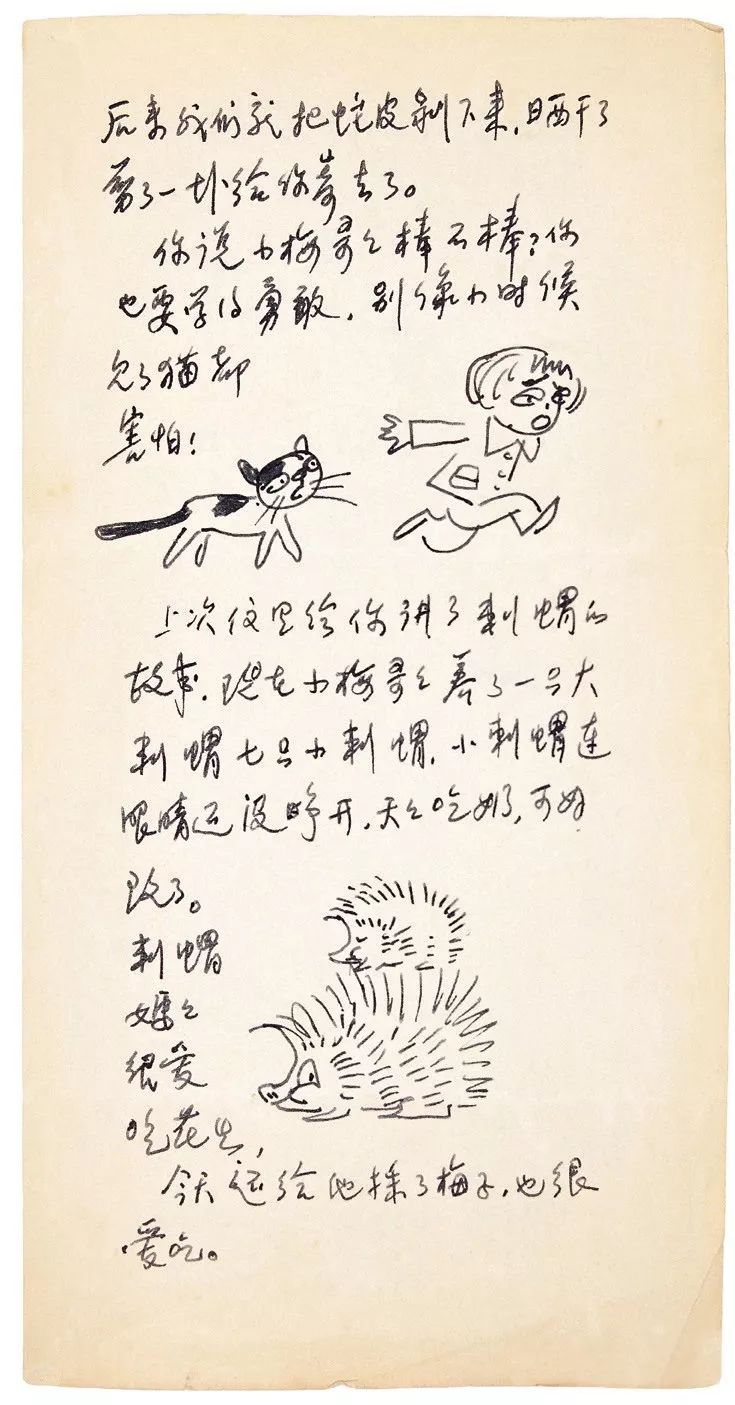 后来我们就把蛇皮剥下来，晒干了
剪了一块给你寄去了。
你说小梅哥々棒不棒？你
也要学得勇敢，别像小时候
见了猫都
害怕！
上次信里给你讲了刺猬的
故事，现在小梅哥々养了一只大
刺猬七只小刺猬，小刺猬连
眼睛还没睁开，天々吃奶，可好
玩了。
刺猬
妈々
很爱
吃花生，
今天还给他采了梅子，也很
爱吃。